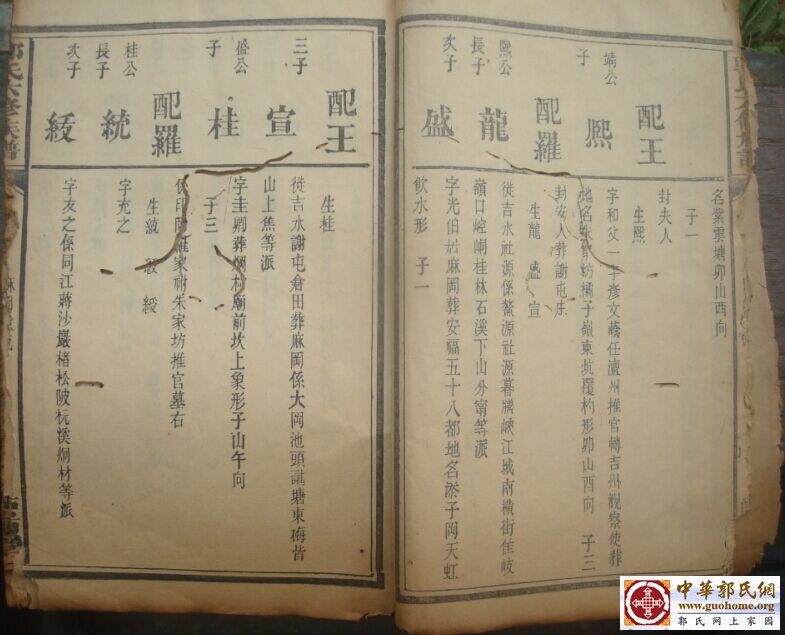 名業雲塘卯山酉向
子一
配王
封夫人
生熙
靖公
子
熙
字和父一字彥文蔭任澶州推官轉吉州觀察使葬
地名朱家坊橘子嶺東坑覆杓形卯山酉向 子三
配羅
封安人葬謝屯庄
生龍 盛 宣
熙公
長子
龍
徙吉水社源係鰲源社源暮膳峽江城南橫街隹岐
嶺口崆峒桂林石溪下山分甯等派
次子
盛
字光伯居麻岡葬安福五十八都地名添子岡天虹
飲水形 子一
配王
生桂
三子
宣
徙吉水謝屯倉田葬麻岡係大岡池頭諶塘東梅皆
山上焦等派
盛公
子
桂
字圭剛葬烱村廟前坎上象形子山午向
子三
配羅
家祔朱家坊推官墓右
生統 綬
桂公
長子
統
字充之
次子
綬
字友之係同江蔣沙嚴楮松陂杬溪烱材等派
中華郭氏網
www.guohome.org
郭氏网上家园